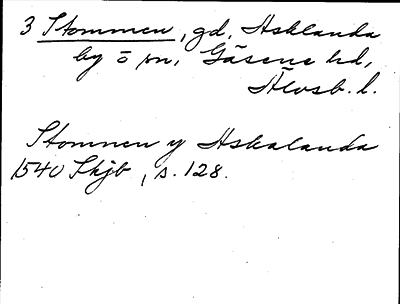 3 Stommen, gd, Asklanda
by o sn, Gäsene hd,
Älvsb. l.
Stomnen y Askalanda
1540 Skjb, s. 128.